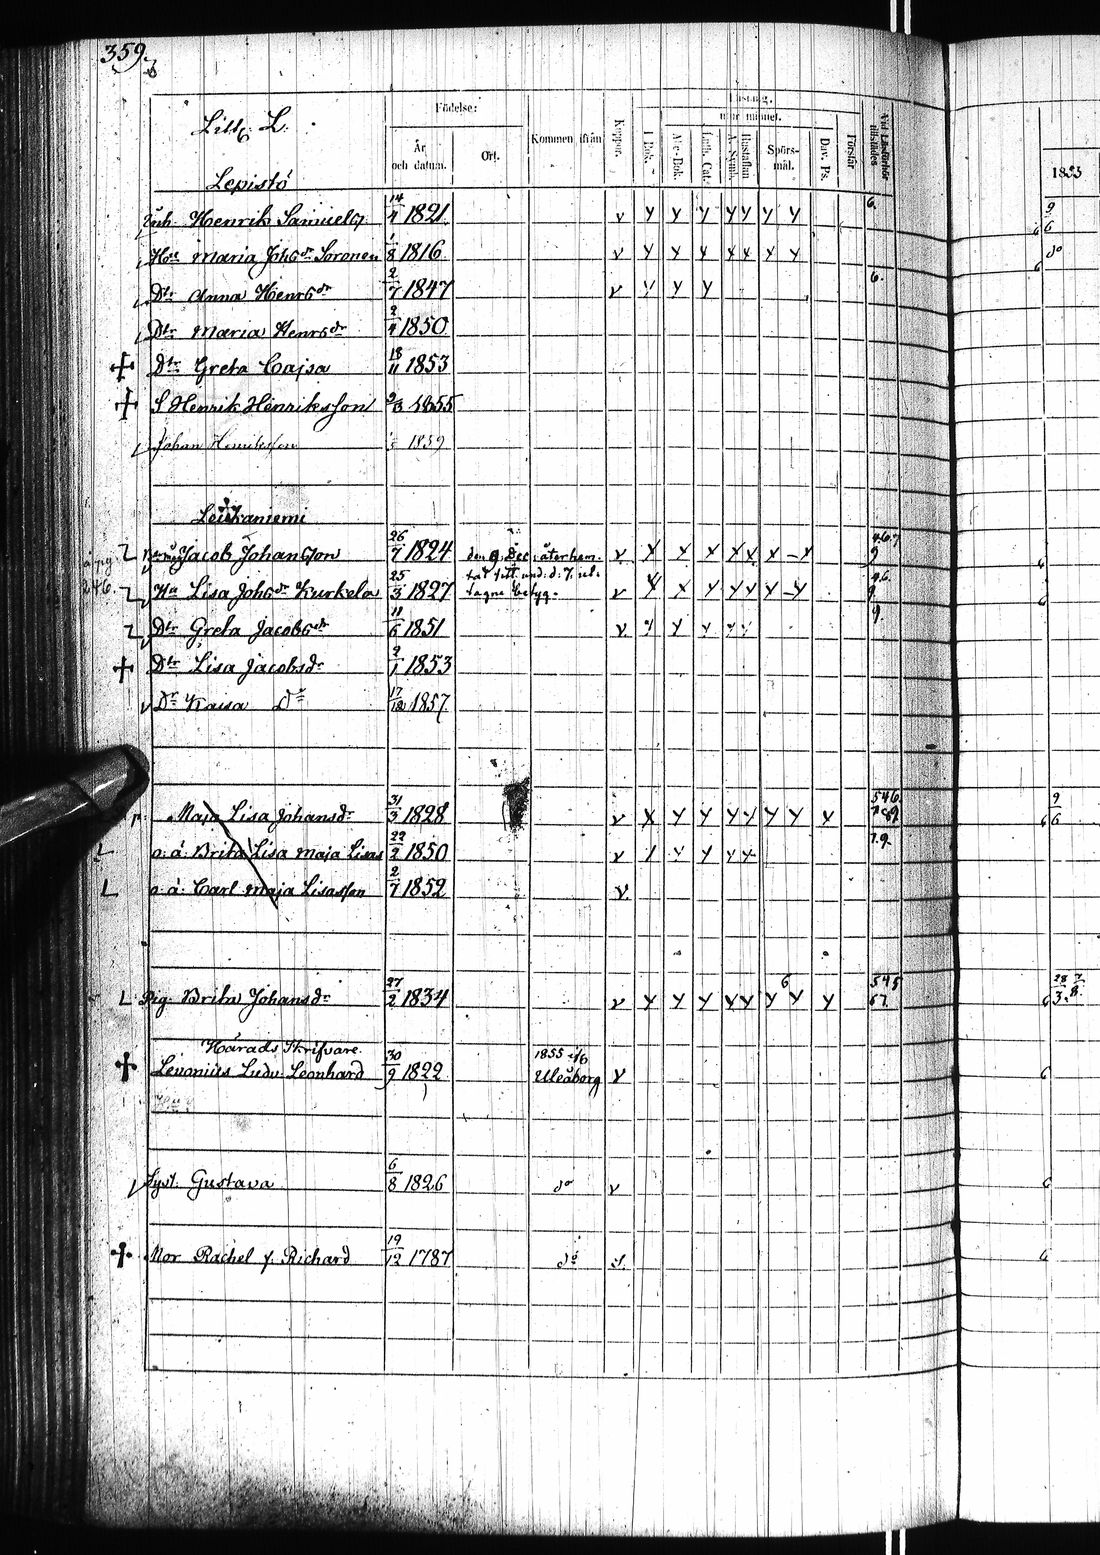 359.
Litt. L.
Födelse:
År och datum.
Ort.
Kommen ifrån
Koppor.
I Bok.
A b c-Bok.
Luth. Cat.
A. Symb.
Hustaflan
Spörs-mål.
Dav. Ps.
Förstår
Vid Läseförhör tillstädes
1853
Lepistö
Henrik Samuels 14/4 1821 6.
Hu Maria Johsdr Soronen 1/8 1816 do
Dtr Anna Henrsdr 2/7 1847 6.
Dtr Maria Henrsdr 2/4 1850
Dtr Greta Cajsa 18/11 1853
S Henrik Henriksson 2/3 1855
Johan Henriksson 1859
Leiskaniemi
Jacob Johansson 26/7 1824 den 9 Dec. återhem-
246. tat
Hu Lisa Johsdr Kurkela 25/3 1827 tagne betyg.
Dtr Greta Jacobsdr 11/6 1851 9.
Dtr Lisa Jacobsdr 2/1 1853
Dr Kaisa Dr 17/12 1857
Maja Lisa Johansdr 31/3 1828 546. 9/6
o.ä. Brita Lisa Maja Lisas 22/2 1850 7.9.
o.ä. Carl Maja Lisasson 2/7 1852
Pig. Brita Johansdr 27/2 1834 6 545 67.
Härads Skrifvare
Levonius Ludv. Leonhard 30/9 1822 1855 Uleåborg
Syst. Gustava 6/8 1826 do
Mor Rachel f. Richard 19/12 1787 do